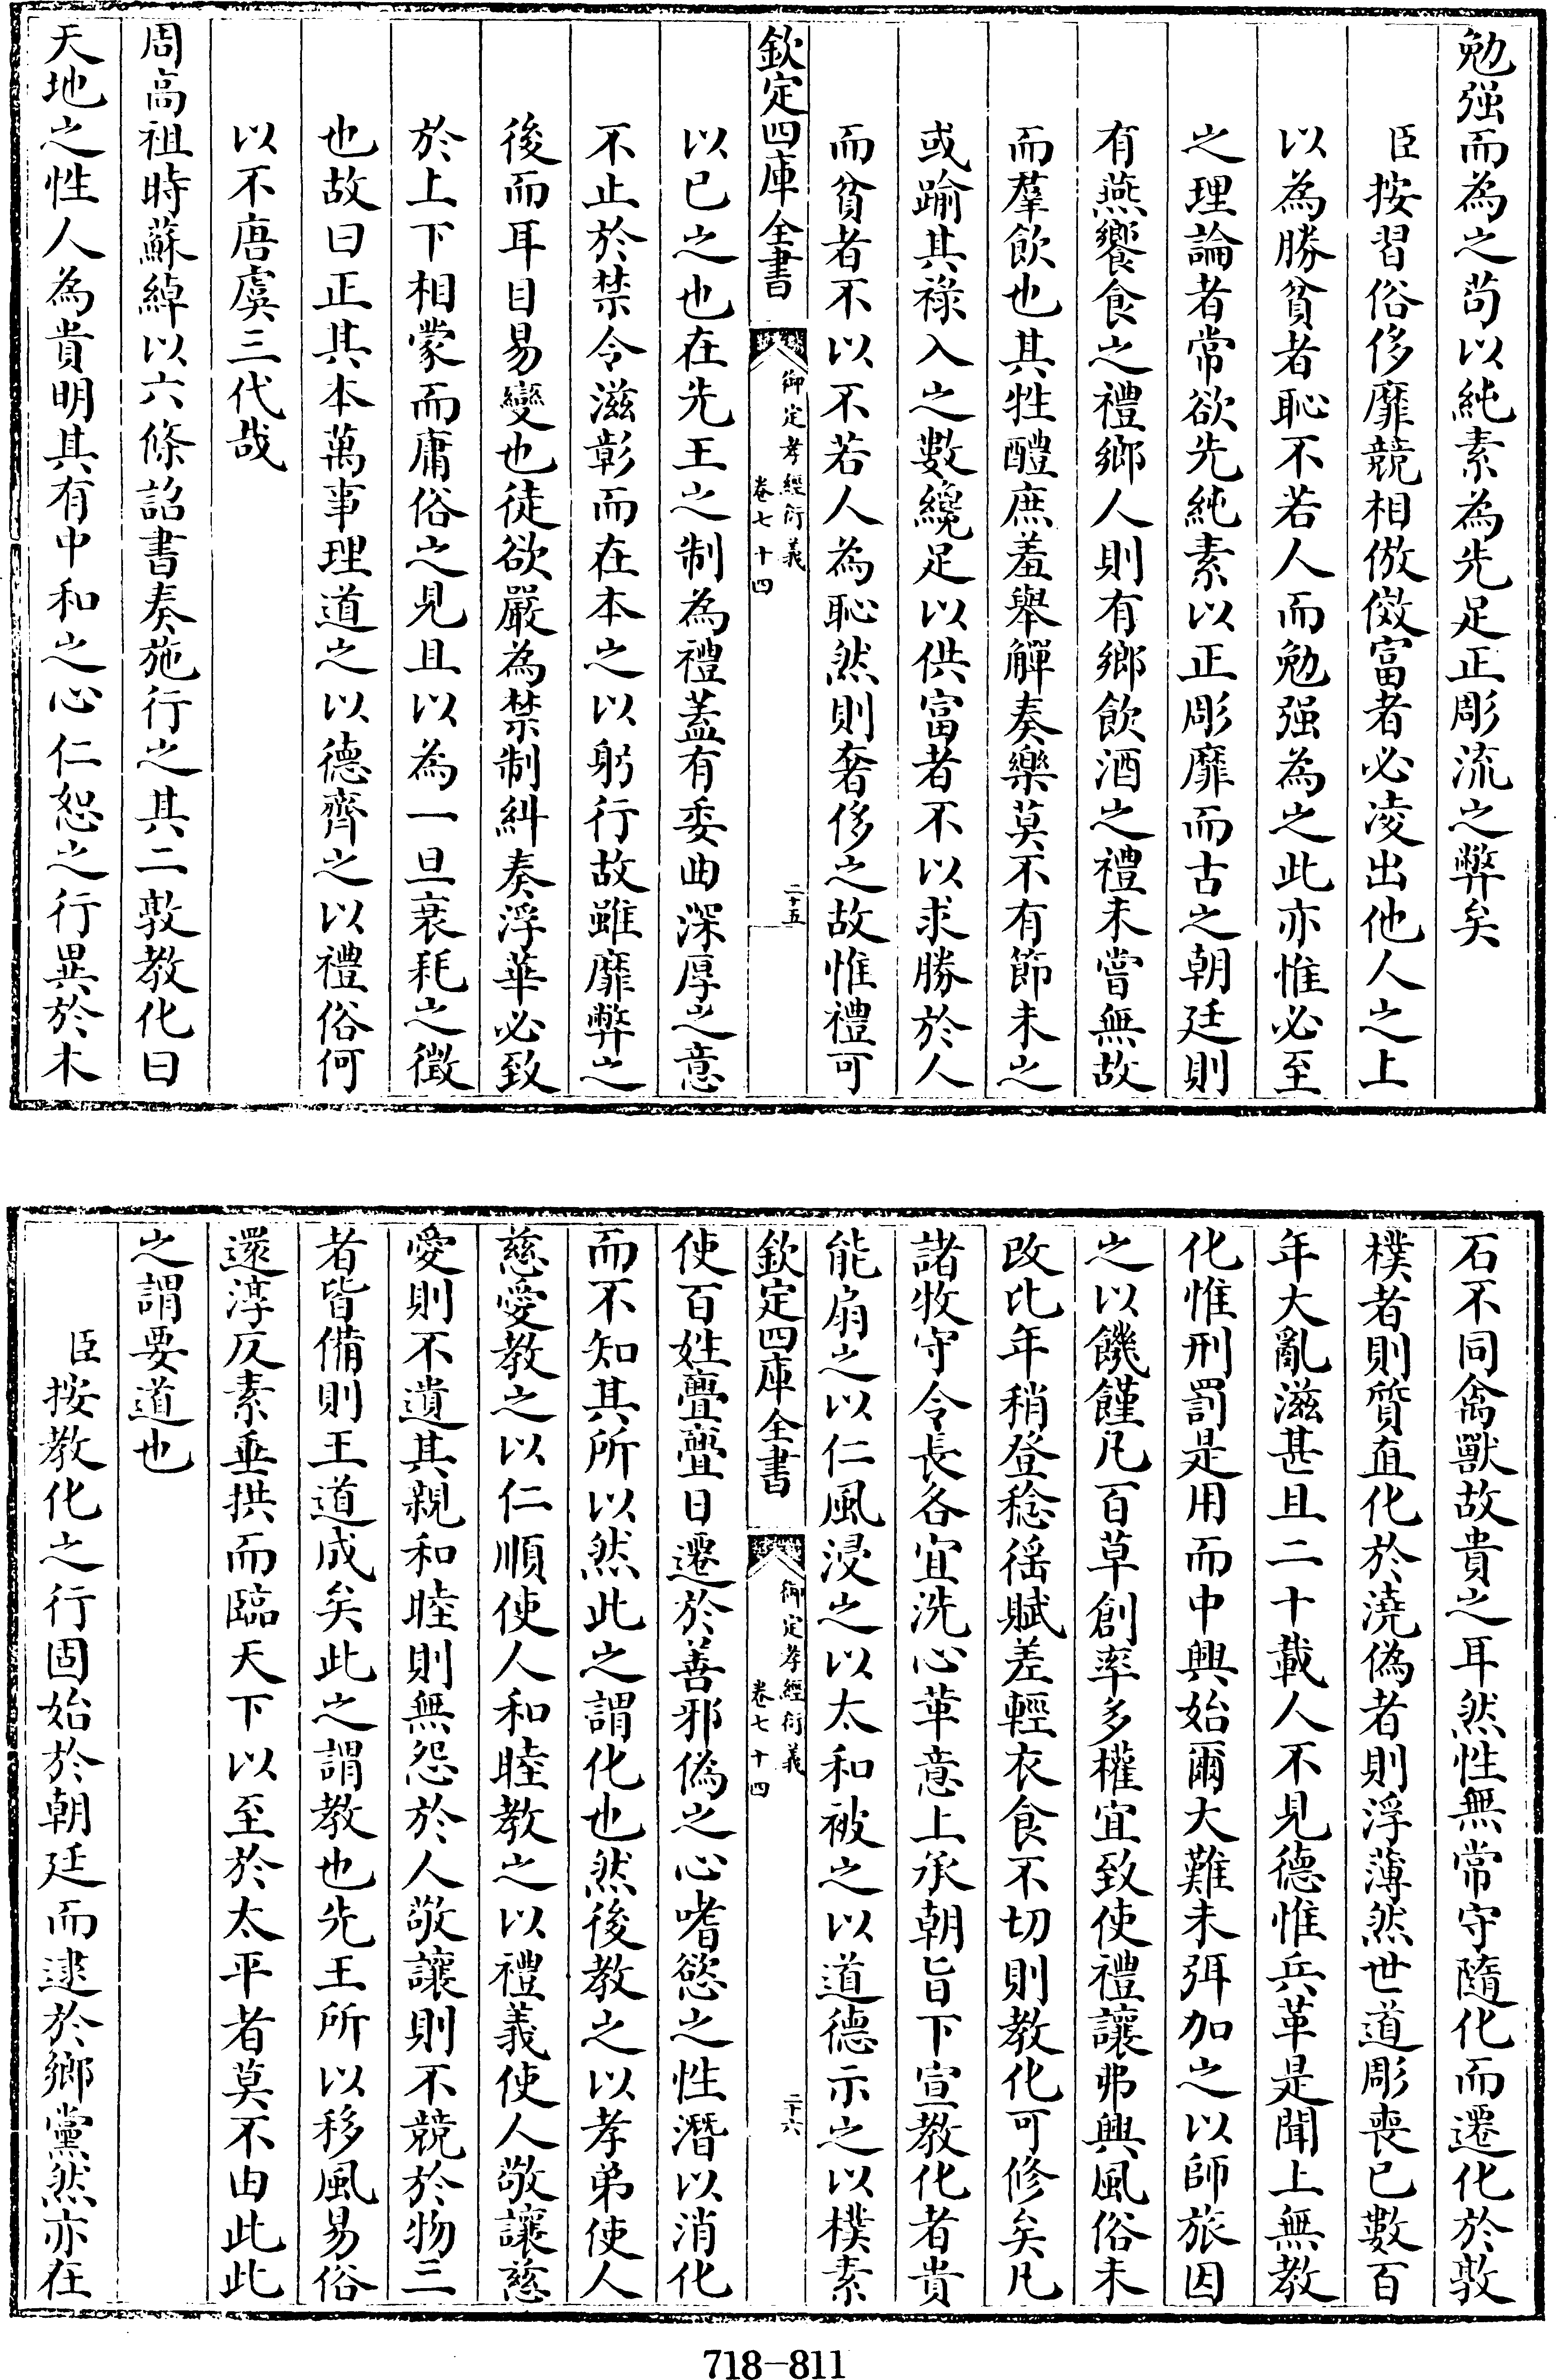 勉强而為之茍以純素為先足正彫流之弊矣
臣按習俗侈靡競相倣傚富者必凌出他人之上
以為勝貧者恥不若人而勉强為之此亦惟必至
之理論者常欲先純素以正彫靡而古之朝廷則
有燕饗食之禮鄉人則有鄉飲酒之禮未嘗無故
而羣飲也其牲醴庶羞舉觶奏樂莫不有節未之
或踰其祿入之數纔足以供富者不以求勝於人
而貧者不以不若人為恥然則奢侈之故惟禮可
欽定四庫全書 御定孝經衍義 卷七十四 二十五
以已之也在先王之制為禮蓋有委曲深厚之意
不止於禁令滋彰而在本之以躬行故雖靡弊之
後而耳目易變也徒欲嚴為禁制糾奏浮華必致
於上下相蒙而庸俗之見且以為一旦衰耗之徵
也故曰正其本萬事理道之以德齊之以禮俗何
以不唐虞三代哉
周高祖時蘇綽以六條詔書奏施行之其二敦教化曰
天地之性人為貴明其有中和之心仁恕之行異於木
石不同禽獸故貴之耳然性無常守隨化而遷化於敦
樸者則質直化於澆偽者則浮薄然世道彫喪已數百
年大亂滋甚且二十載人不見德惟兵革是聞上無教
化惟刑罰是用而中興始爾大難未弭加之以師旅因
之以饑饉凡百草創率多權宜致使禮讓弗興風俗未
改比年稍登稔徭賦差輕衣食不切則教化可修矣凡
諸牧守令長各宜洗心革意上承朝旨下宣教化者貴
能扇之以仁風浸之以太和被之以道德示之以樸素
欽定四庫全書 御定孝經衍義 卷七十四 二十六
使百姓亹亹日遷於善邪偽之心嗜慾之性潛以消化
而不知其所以然此之謂化也然後教之以孝弟使人
慈愛教之以仁順使人和睦教之以禮義使人敬讓慈
愛則不遺其親和睦則無怨於人敬讓則不競於物三
者皆備則王道成矣此之謂教也先王所以移風易俗
還淳反素垂拱而臨天下以至於太平者莫不由此此
之謂要道也
臣按教化之行固始於朝廷而逮於鄉黨然亦在
718-811